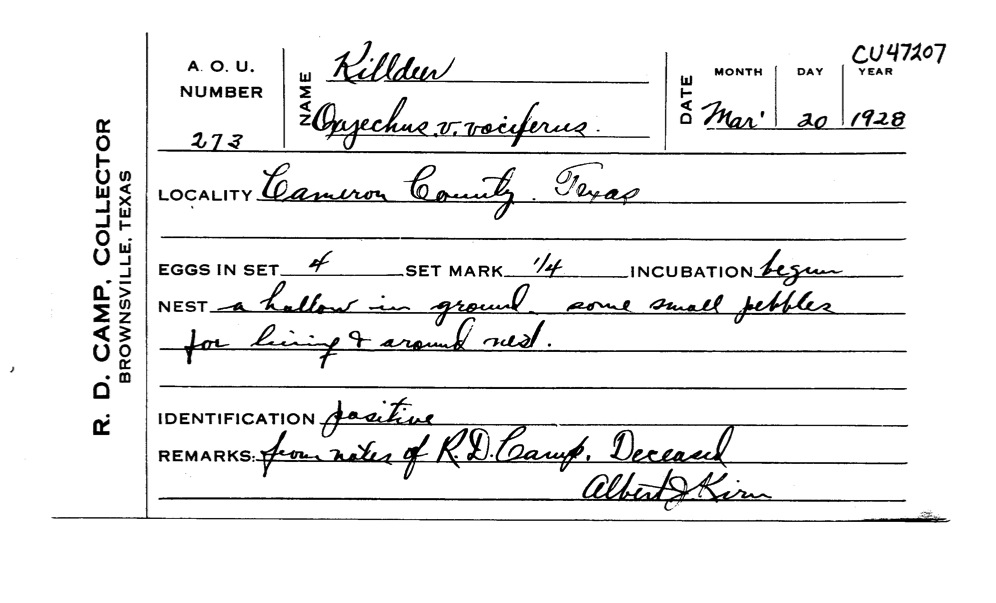 CU47207
R. D. CAMP, COLLECTOR
BROWNSVILLE, TEXAS
A. O. U.
NUMBER
273
NAME Killdeer
Oxyechus. v. vociferus.
DATE
MONTH DAY YEAR
Mar' 20 1928
LOCALITY Cameron County. Texas
EGGS IN SET 4 SET MARK 1/4 INCUBATION begun
NEST a hollow in ground. some small pebbles
for lining & around nest.
IDENTIFICATION positive
REMARKS: from notes of R.D. Camp. Deceased
Albert J. Kirn